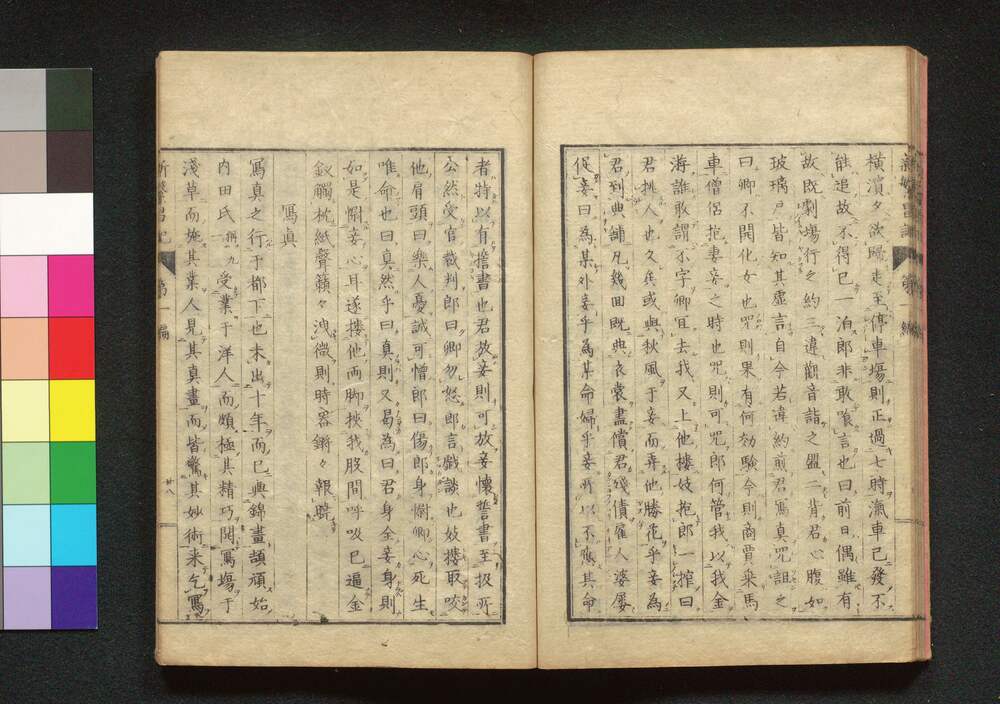 横濱夕欲歸走至停車場則正過七時滊車已發不
能追故不得已一泊郎非敢喰言也曰前日偶雖有
故既劇場行之約三違觀音詣之盟二背君心腹如
玻璃戸皆知其虚言自今若違約煎君寫真咒詛之
曰卿不開化女也咒則果有何効驗今則商賈乘馬
車僧侶抱妻妾之時也咒則可咒郎何管我以我金
游誰敢謂不字卿宜去我又上他樓妓抱郎一搾曰
君挑人也久矣或與秋風于妾而弄他勝花乎妾為
君到典鋪凡幾回既典衣裳盡償君殘債雇人婆屡
促妾曰為某外妾乎為某命婦乎妾所以不應其命
者特以有誓書也君放妾則可放妾懷誓書至扱所
公然受官裁判郎曰卿勿怒郎言戲談也妓摟取咬
他肩頭曰樂人憂誠可憎郎曰傷郎身慰卿心死生
唯命也曰真然乎曰真則又曷為曰君身全妾身則
如是慰妾心耳遂摟他両脚挾我股間呼吸已逼金
釵觸枕紙聲籟々洩微則時器鏘々報曉
寫真
寫真之行于都下也未出十年而已與錦畫頡頏始
内田氏稱九受業于洋人而頗極其精巧開寫場于
淺草而施其業人見其真畫而皆驚其妙術来乞寫
新繁昌記
第一編
廿八